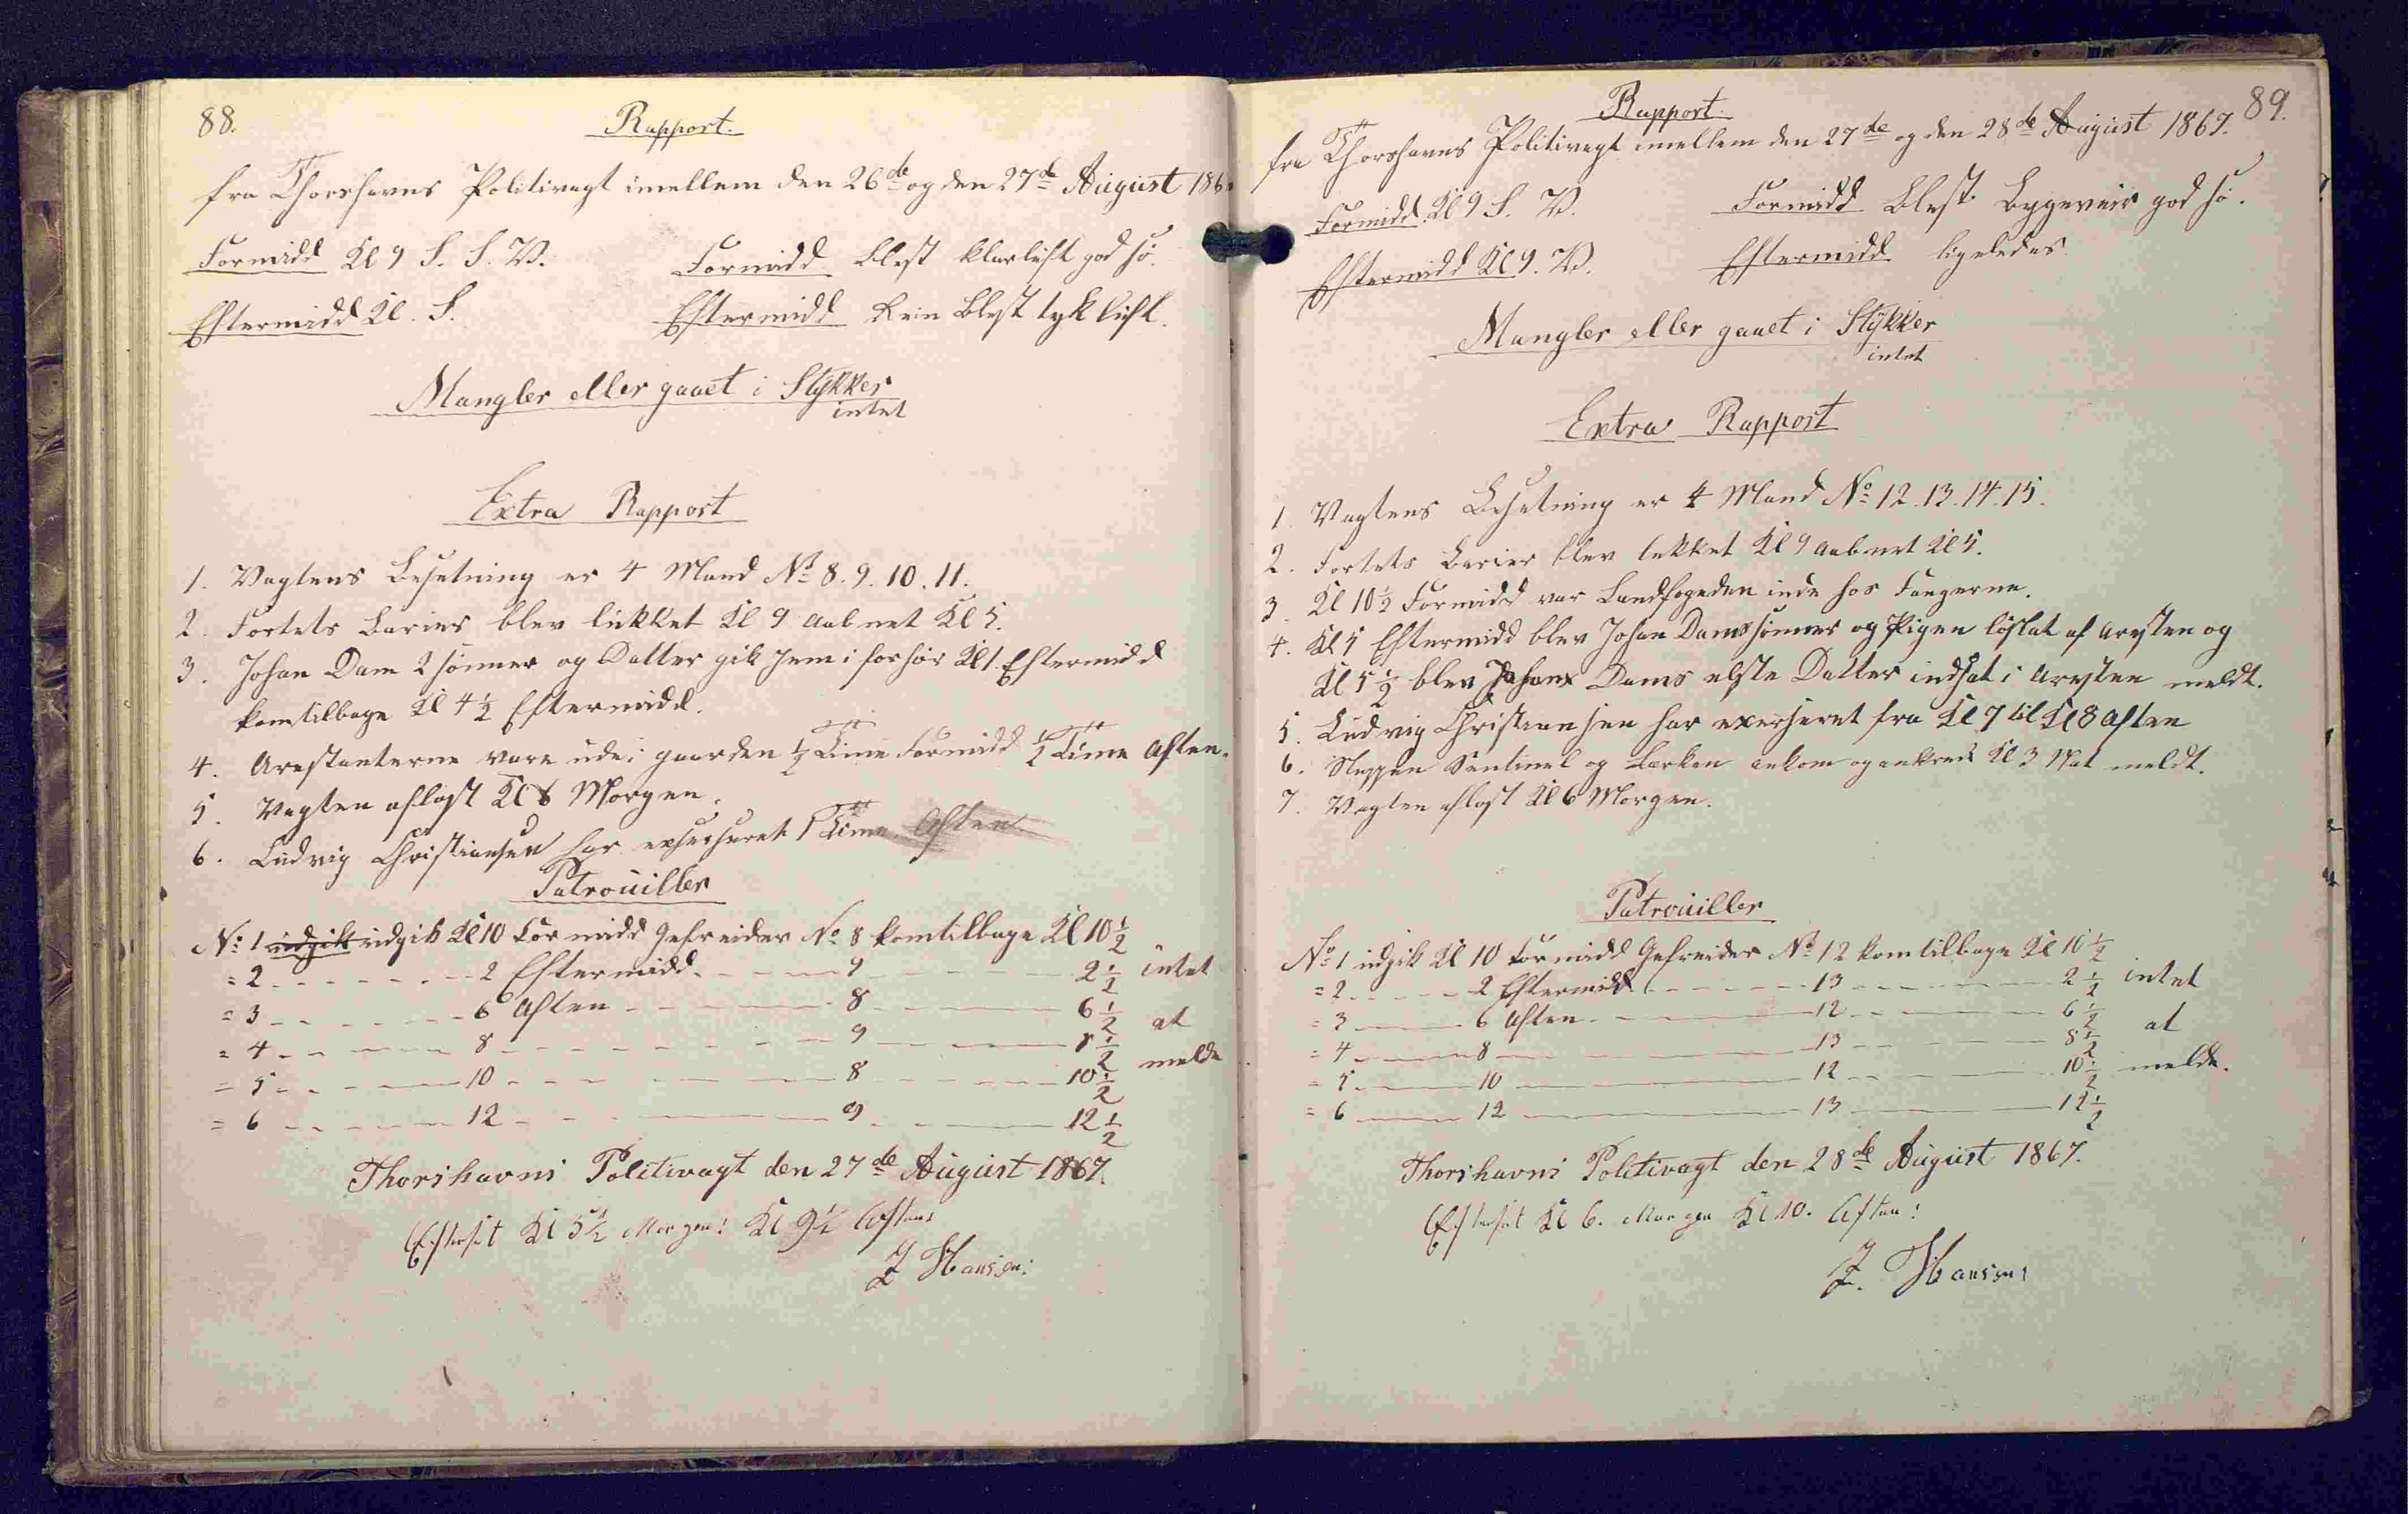 88.
Rapport.
fra Thorshavns Politivagt imellem den 26de og den 27de August 186
Formidd Kl 9 S. S. V. Formidd blest klarluft god sø.
Eftermidd Kl. S. Eftermidd Rein blest tyk luft.
Mangler eller gaaet i Stykker
intet
Extra Rapport
1. Vagtens Besetning er 4 Mand No 8. 9. 10. 11.
2. Fortets Barier blev lukket Kl 9 aabnet Kl 5.
3. Johan Dam 2 sønner og Datter gik hem i forhør Kl 1. Eftermidd
kom tilbage Kl 4 1/2 Eftermidd.
4. Arestanterne vare ude i gaarden 1/2 Time Formidd 1/2 Time Aften.
5. Vagten afløst Kl 6 Morgen.
6. Ludvig Christiansen har exserseret 1 Time Aften
Patrouiller
No 1 udgik udgik Kl 10 Formidd Gefreider No 8 kom tilbage Kl 10 1/2
= 2 2 Eftermidd. 9 2 1/2 intet
= 3 6 Aften 8 6 1/2
= 4 8 9 8 1/2 at
= 5 10 8 10 1/2 melde
= 6 12 9 12 1/2
Thorshavns Politivagt den 27de August 1867.
Efterset Kl 5 1/2 Morgen! Kl 9 1/2 Aften!
J Hansen!
89.
Rapport.
fra Thorshavns Politivagt imellem den 27de og den 28de August 1867.
Formidd. Kl 9 S. V. Formidd blest Bygeveir god sø.
Eftermidd Kl 9. V. Eftermidd ligeledes
Mangler eller gaaet i Stykker
intet
Extra Rapport
1. Vagtens Besetning er 4 Mand No 12. 13. 14. 15.
2. Fortets Barier blev lukket Kl 9 aabnet Kl 5.
3. Kl 10 1/2 Formidd var Landfogeden inde hos Fangerne.
4. Kl 5 Eftermidd blev Johan Dams sønner og Pigen løslat af Aresten og
Kl 5 1/2 blev Johans Dams elste Datter indsat i Aresten meldt.
5. Ludvig Christiansen har exerseret fra Kl 7 til Kl 8 Aften
6. Sluppen Sentinel og Barken ankom og ankred Kl 3 Nat meldt.
7. Vagten afløst Kl 6 Morgen.
Patrouiller
No 1 udgik Kl 10 Formidd Gefreider No 12 kom tilbage Kl 10 1/2
= 2 2 Eftermidd 13 2 1/2 intet
= 3 6 Aften 12 6 1/2
= 4 8 13 8 1/2 at
= 5 10 12 10 1/2 melde.
= 6 12 13 12 1/2
Thorshavns Politivagt den 28de August 1867.
Efterset Kl 6. Morgen Kl 10. Aften!
J. Hansen!